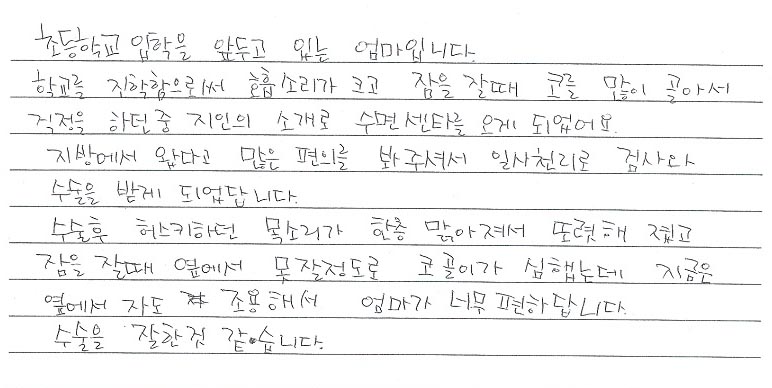 초등학교 입학을 앞두고 있는 엄마입니다.
학교를 진학함으로써 호흡소리가 크고 잠을 잘때 코를 많이 골아서
걱정을 하던중 지인의 소개로 수면센타를 오게 되었어요.
지방에서 왔다고 많은 편의를 봐주셔서 일사천리로 검사와
수술을 받게 되었답니다.
수술후 허스키하던 목소리가 한층 맑아져서 또렷해 졌고
잠을 잘때 옆에서 못잘정도로 코골이가 심했는데 지금은
옆에서 자도 조용해서 엄마가 너무 편하답니다.
수술을 잘한것 같습니다.